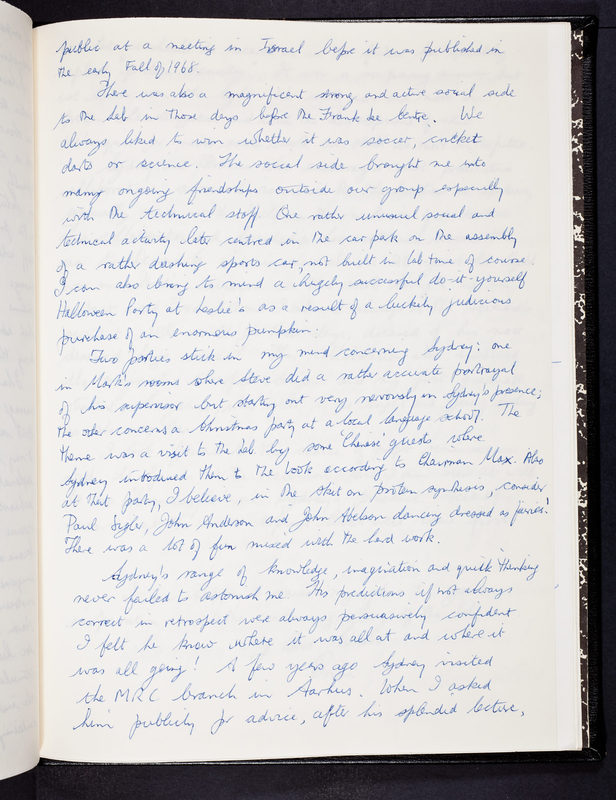 public at a meeting in Israel before it was published in
the early Fall of 1968.
There was also a magnificent strong and active social side
to the Lab in those days before the Frank Lee Centre. We
always liked to win whether it was soccer, cricket
darts or science. The social side brought me into
many ongoing friendships outside our group especially
with the technical staff. One rather unusual social and
technical activity later centred in the car park on the assembly
of a rather dashing sports car, not built in lab time of course.
I can also bring to mind a hugely successful do-it-yourself
Halloween Party at Leslie's as a result of a luckily judicious
purchase of an enormous pumpkin.
Two parties stick in my mind concerning Sydney: one
in Mark's rooms where Steve did a rather accurate portrayal
of his supervisor but starting out very nervously in Sydney's presence;
the other concerns a Christmas party at a local language school. The
theme was a visit to the Lab. by some 'Chinese' guests where
Sydney introduced them to the book according to Chairman Max. Also
at that party, I believe, in the skit on protein synthesis, consider
Paul Sigler, John Anderson and John Abelson dancing dressed as fairies!
There was a lot of fun mixed with the hard work.
Sydney's range of knowledge, imagination and quick thinking
never failed to astonish me. His predictions if not always
correct in retrospect were always persuasively confident
I felt he knew where it was all at and where it
was all going! A few years ago Sydney visited
the MRC branch in Aarhus. When I asked
him publicly for advice, after his splendid lecture,